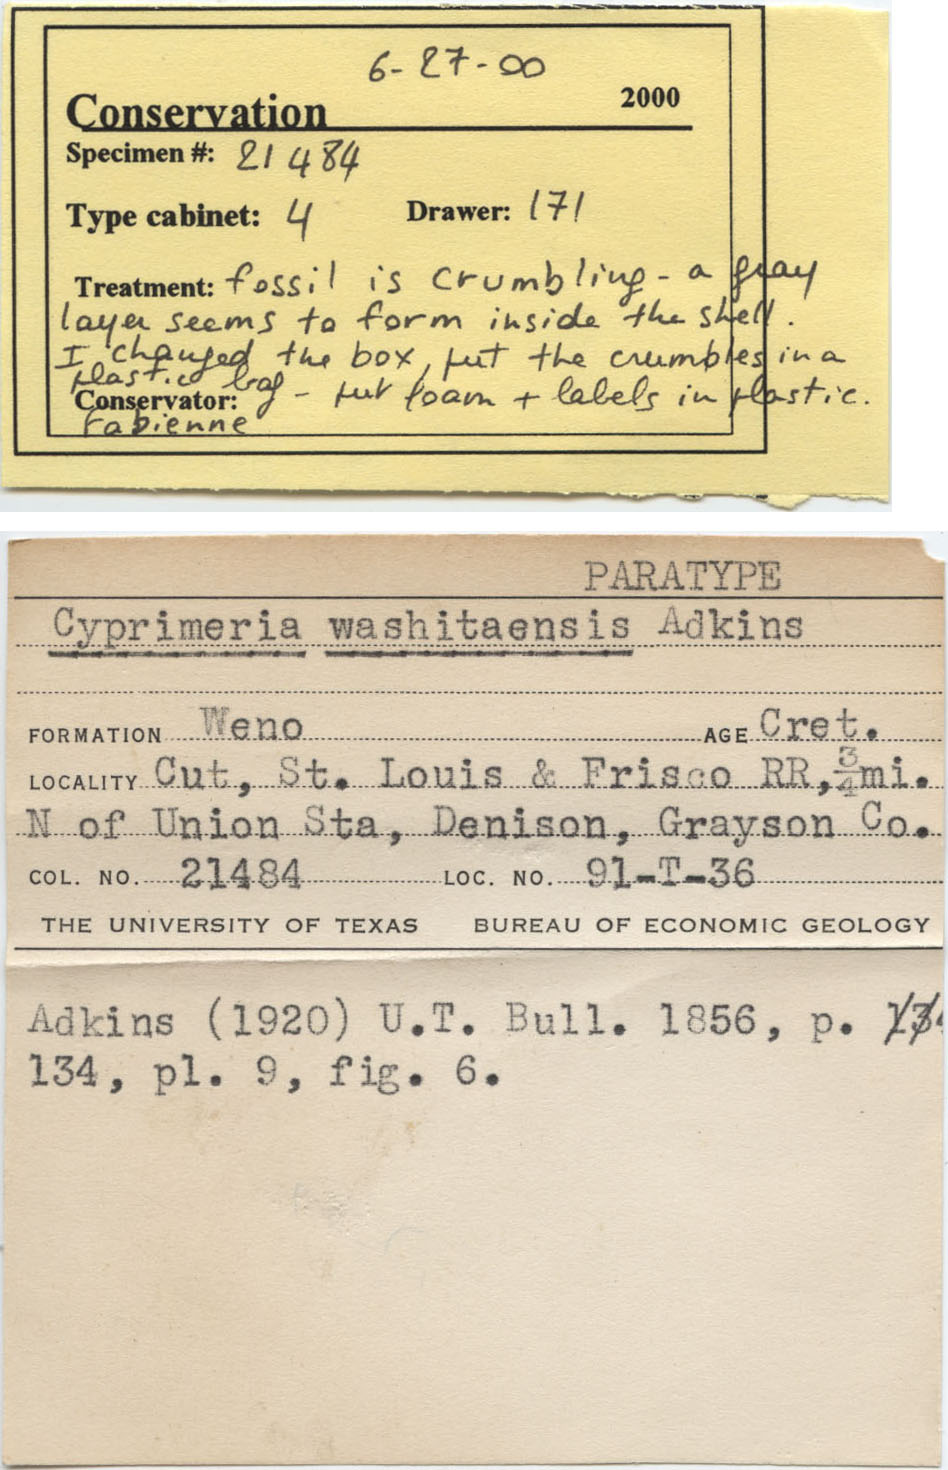 6-27-00
Conservation 2000
Specimen #: 21484
Type cabinet: 4 Drawer: 171
Treatment: fossil is crumbling - a gray
layer seems to form inside the shell.
I changed the box, put the crumbles in a
plastic bag - put foam + labels in plastic.
Conservator:
Fabienne
PARATYPE
Cyprimeria washitaensis Adkins
FORMATION Weno AGE Cret.
LOCALITY Cut, St. Louis & Frisco RR, 3/4 mi.
N of Union Sta, Denison, Grayson Co.
COL. NO. 21484 LOC. NO. 91-T-36
THE UNIVERSITY OF TEXAS BUREAU OF ECONOMIC GEOLOGY
Adkins (1920) U.T. Bull. 1856, p.
134, pl. 9, fig. 6.